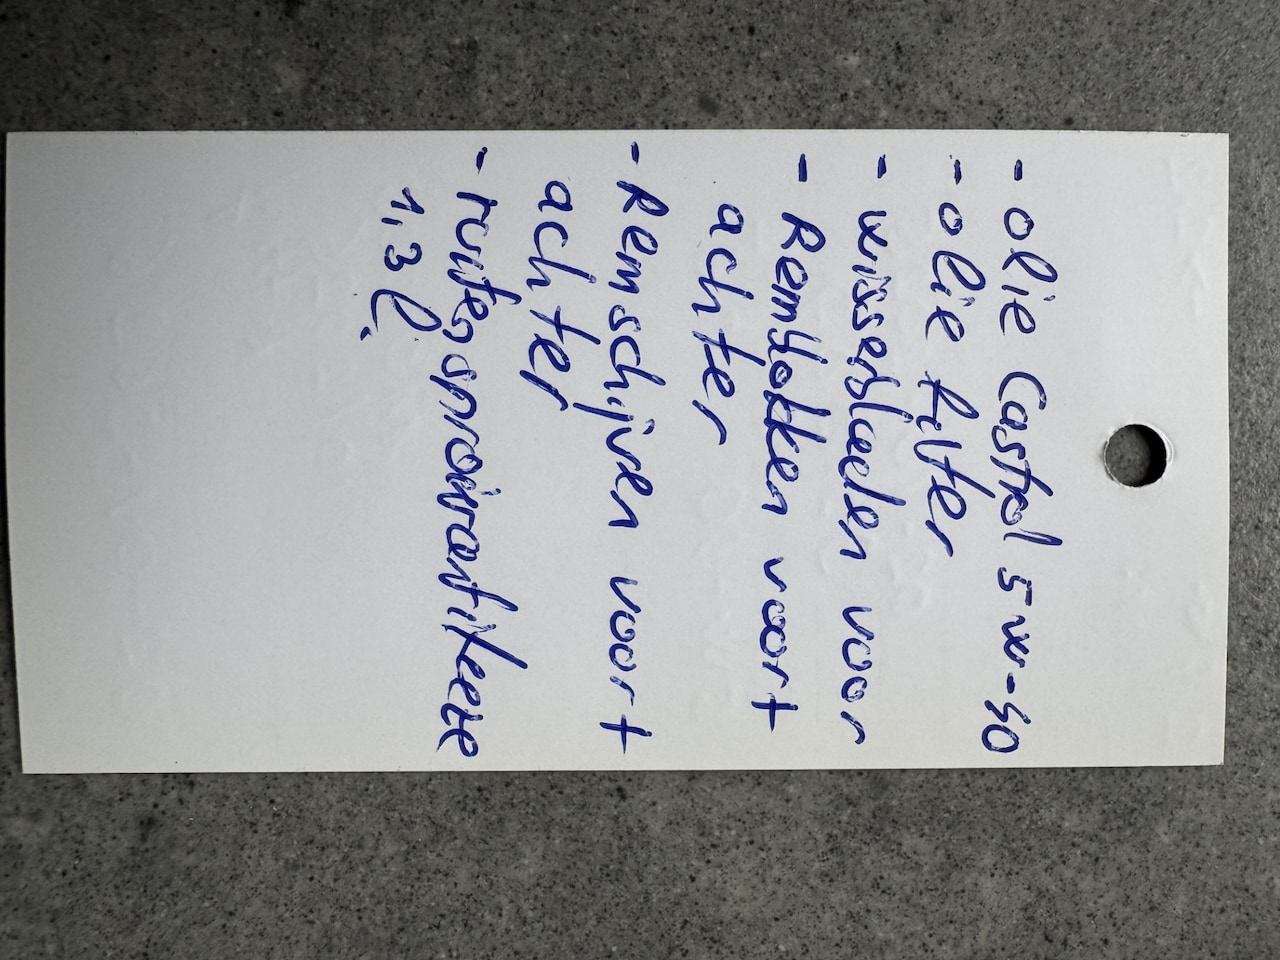 - olie Castrol 5w-40
- olie filter
- wisserbladen voor
- Remblokken voor +
achter
- Remschijven voor +
achter
- ruitensproeivoeistof
1,3 l.